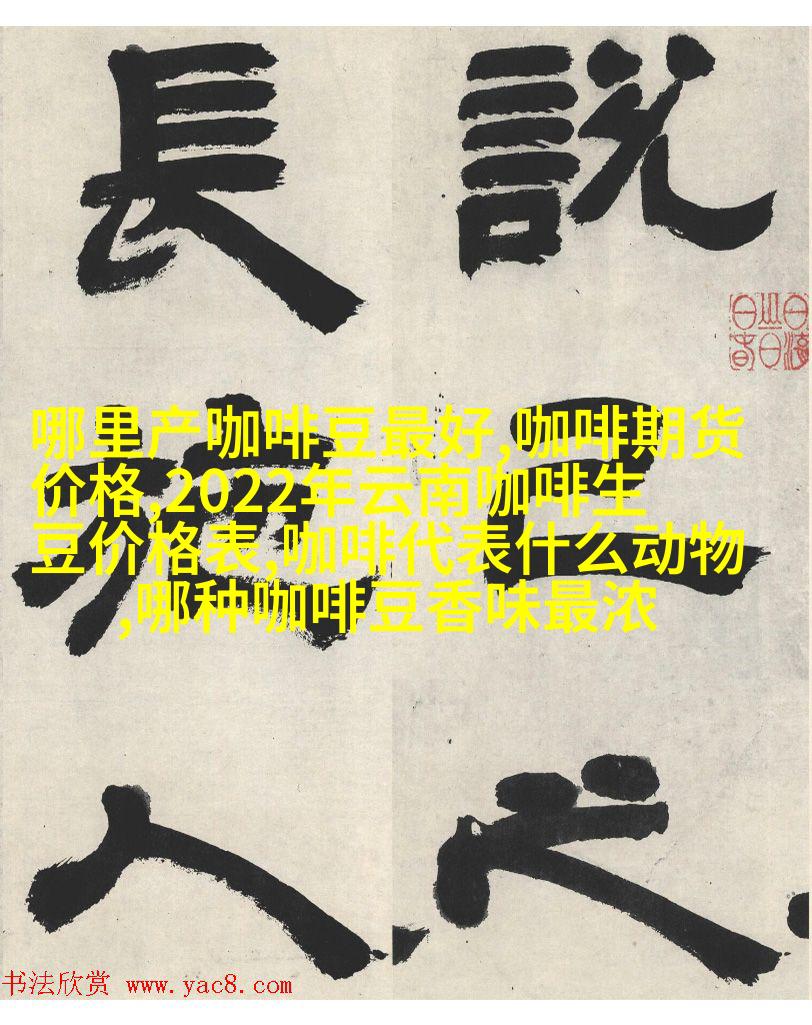 說三
長人
哪里产咖啡豆最好,咖啡期货
价格,2022年云南咖啡生
豆价格表,咖啡代表什么动物
,哪种咖啡豆香味最浓
书法欣赏 www.yac8.com